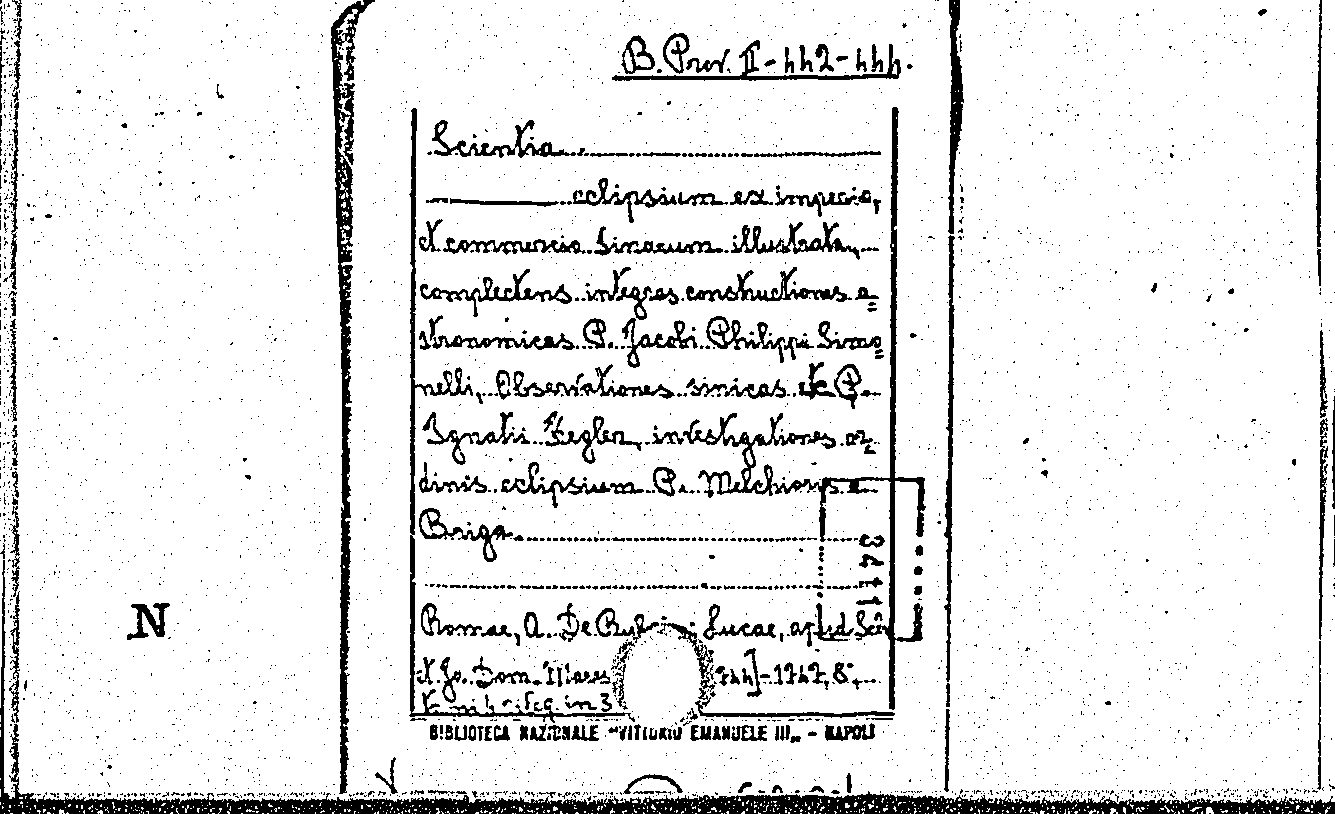 B. Prov. II-442-444.
Scientia
eclipsium ex imperio,
et commercio Sinarum illustrata,
complectens integras constructiones a=
stronomicas P. Jacobi Philippi Simo=
nelli, Observationes sinicas P.
Ignatii Kegler, investigationes or=
dinis eclipsium P. Melchioris a
Briga.
3411
N
Romae, A. De Lucae, apud
et Jo. Dom. 744]-1747, 8°,
in 3
BIBLIOTECA NAZIONALE "VITTORIO EMANUELE III„ - NAPOLI